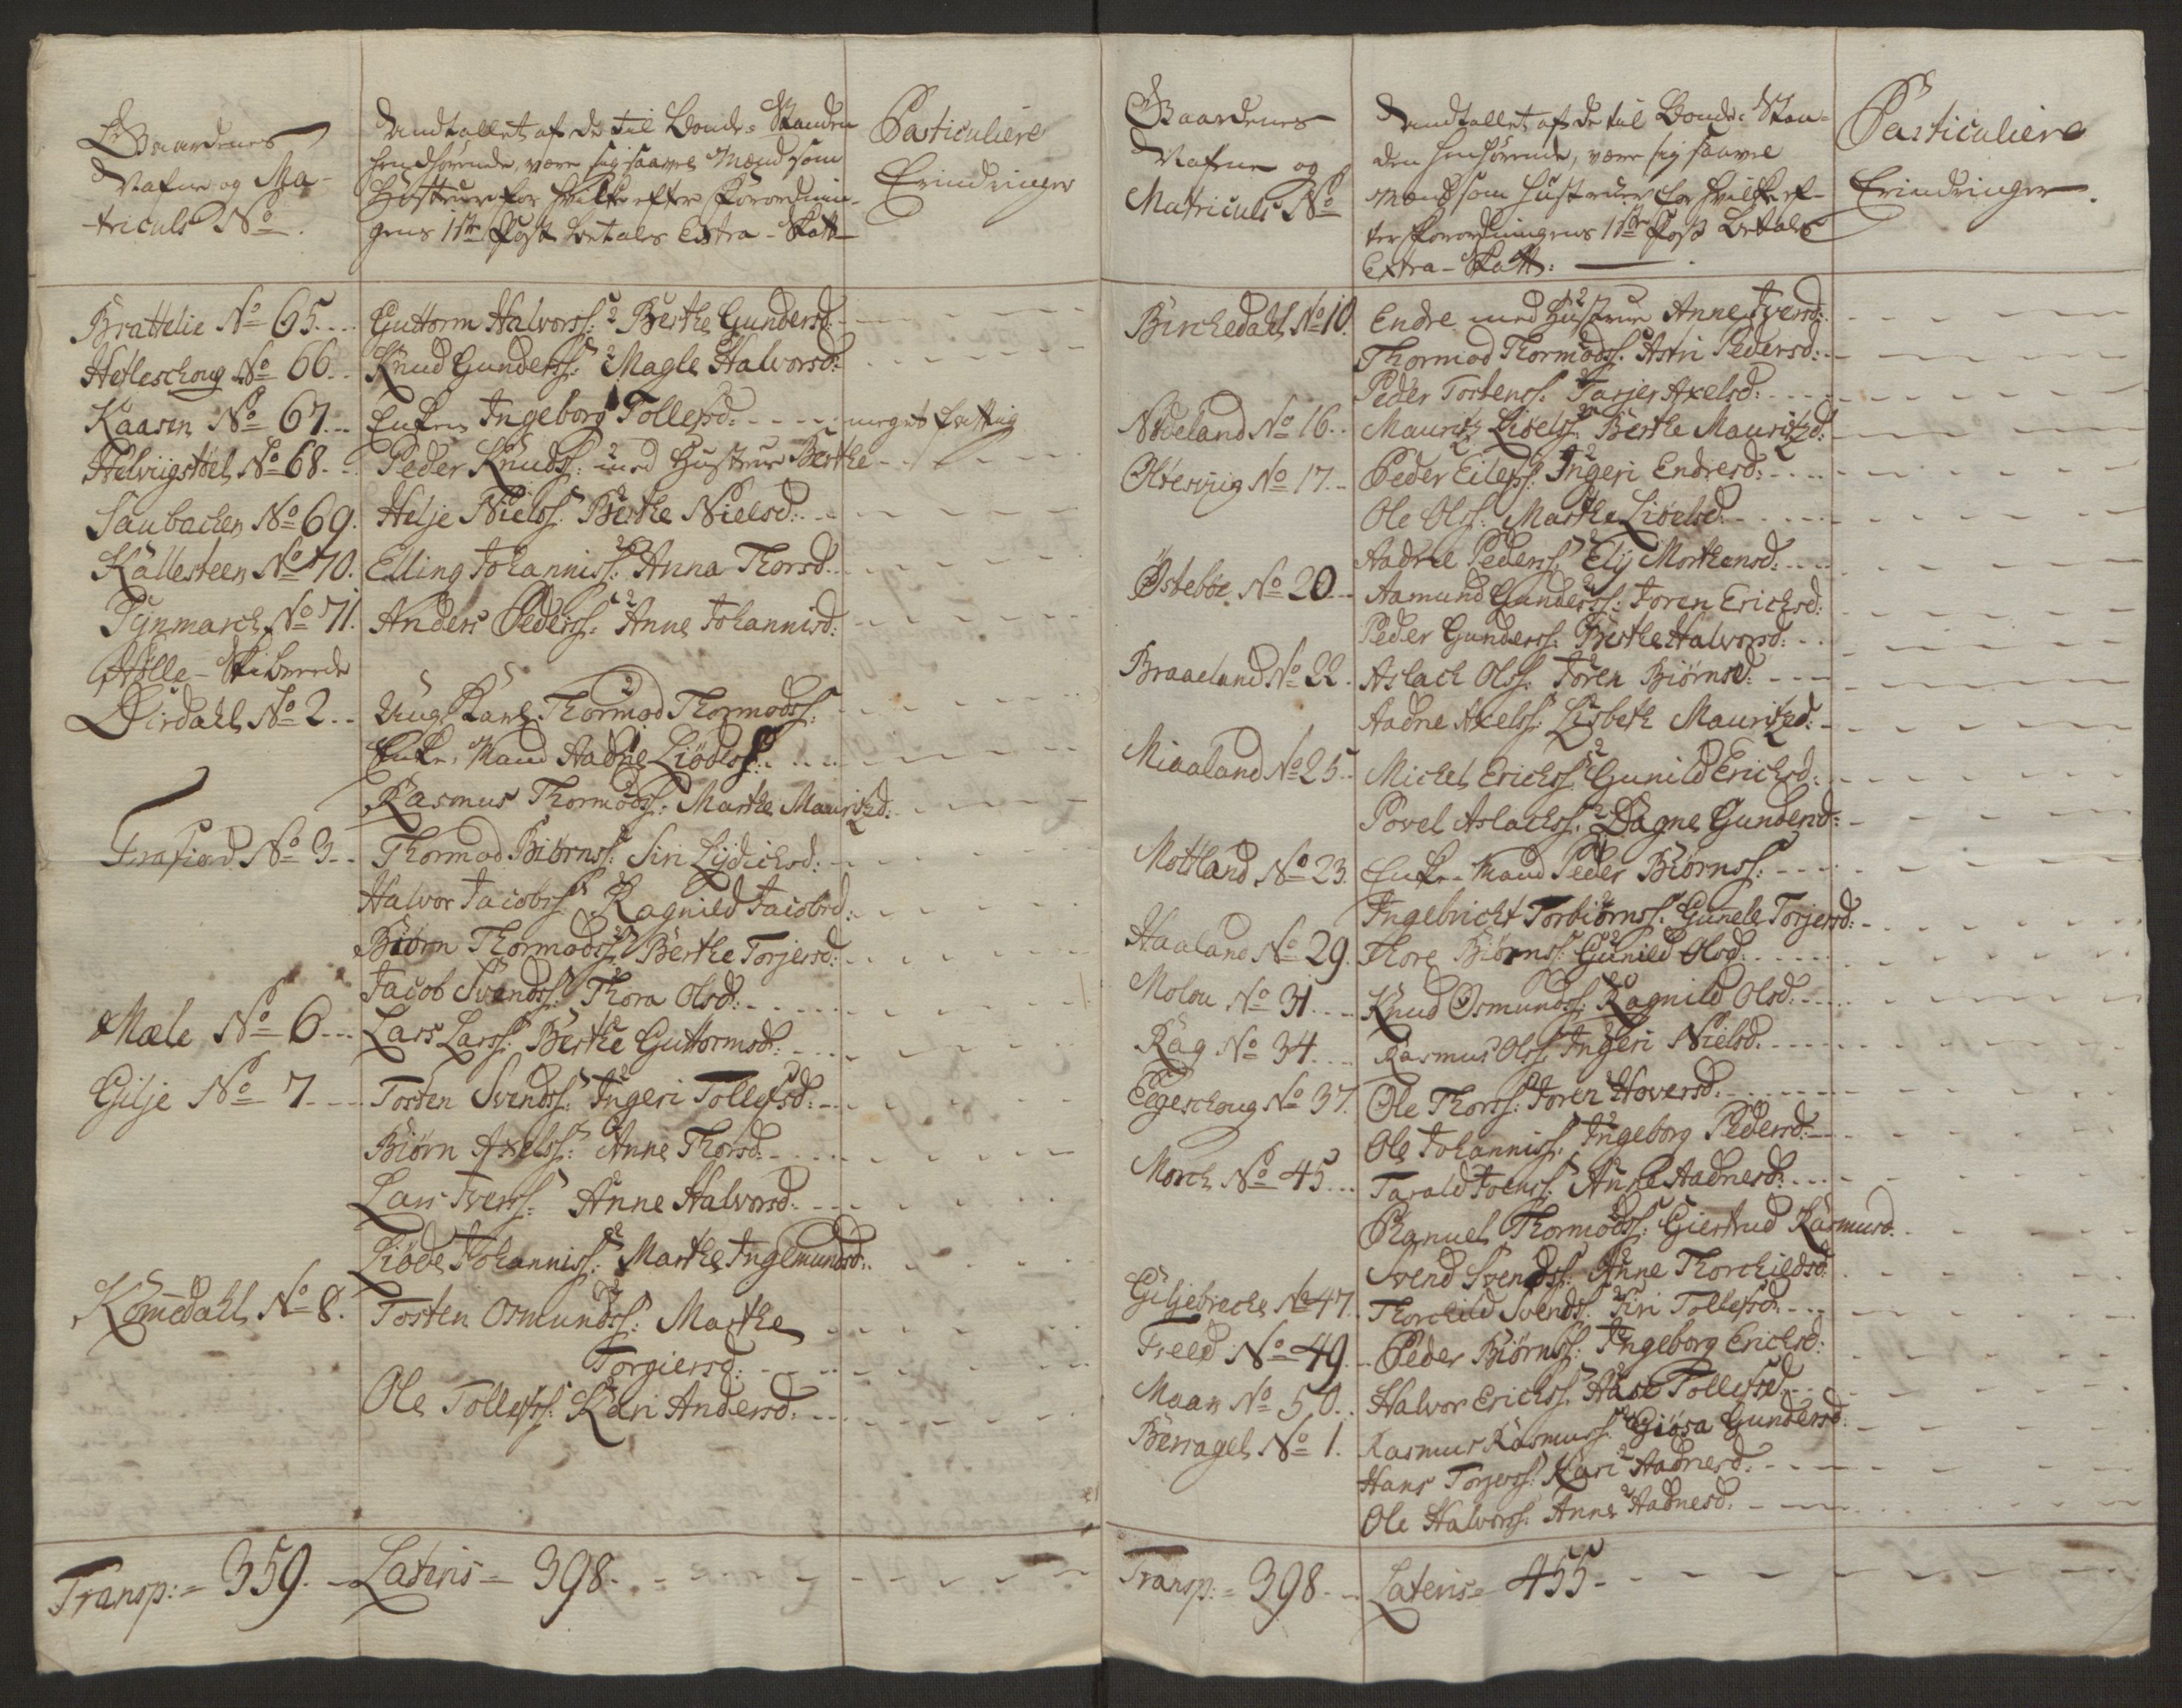 Gaardenes
Nafne og Ma-
triculs No.
Andtallet af de til Bonde-Standen
henhörende, være sig saavel Mænd som
Hustruer for hvilke efter Forordnin-
gens 1ste Post betales Extra-Skatt
Particuliere
Erindringer
Brattelie No 65.... Guttorm Halvorss: 2 Berthe Gundersd:
Hetleschoug No 66.. Knud Gunderss: 2 Magle Halvorsd:
Kaasen No 67... Enken Ingeborg Tollefsd: meget fattig
Helviigstøel No 68.. Peder Knudss: med Hustrue Berthe
Saubachen No 69. Helje Nielss: Berthe Nielsd:
Kallesteen No 70. Elling Johanniss: Anna Thorsd:
Tynmarch No 71. Anders Pederss: 2 Anne Johannisd:
Helle-Skibrede
Dirdahl No 2.. Ung Karl Thormod Thormodss:
Enke-Mand Aadne Liødelss:
Rasmus Thormodss: Marthe Mauritzd:
Frafiord No 3.. Thormod Biørnss: Siri Lydichsd:
Halvor Jacobss: Ragnild Jacobsd:
Biørn Thormodss: Berthe Torjersd:
Jacob Svendss: Thora Olsd:
Mæle No 6... Lars Larss: Berthe Guttormsd:
Gilje No 7.... Tosten Svendss: Ingeri Tollefsd:
Biørn Axelss: Anne Thorsd:
Lars Iverss: Anne Halvorsd:
Liøde Johanniss: Marthe Ingemundsd:
Komedahl No 8. Tosten Osmundss: Marthe
Torgiersd:
Ole Tollefss: Kari Andersd:
Transp: = 359. - Lateris = 398.
Gaardenes
Nafne og
Matriculs No
Andtallet af de til Bonde-Stan-
den henhörende, være sig saavel
Mænd som Hustruer for hvilke ef-
ter Forordningens 1ste Post betales
Extra-Skatt:
Particuliere
Erindringer.
Birchedahl No 10. Endre med Hustrue Anne Iversd:
Thormod Thormodss: Astri Pedersd:
Peder Tostenss: Tarjer Axelsd:
Nødeland No 16.. Mauritz Liøelss: Berthe Mauritzd:
Oltesviig No 17.. Peder Eilefss: Ingeri Endresd:
Ole Olss: Marthe Liøelsd:
Aadne Pederss: Elij Morthensd:
Østebøe No 20.. Aamund Gunderss: Joren Erichsd:
Peder Gunderss: Berthe Halvorsd:
Braaeland No 22. Aslach Olss: Joren Biørnsd:
Aadne Axelss: Lisbeth Mauritzd:
Miaaland No 25.. Michel Erichss: Gunild Erichsd:
Povel Aslachss: Dagne Gundersd:
Motland No 23. Enke-Mand Peder Biørnss:
Ingebricht Torbiørnss: Gunele Torjersd:
Haaland No 29. Thore Biørnss: Gunild Olsd:
Molou No 31.... Knud Osmundss: Ragnild Olsd:
Rag No 34.... Rasmus Olss: Ingeri Nielsd:
Eegeschoug No 37. Ole Thorss: Joren Hoversd:
Ole Johanniss: Ingeborg Pedersd:
Morch No 45... Tarald Joenss: Anne Aadnesd:
Thormodss: Giertrud Rasmusd:
Svend Svendss: Anne Thorchieldsd:
Giljebreche No 47. Thorchild Svends: Siri Tollefsd:
Freed No 49.. Peder Biørnss: Ingeborg Erichsd:
Maan No 50.. Halvor Erichss: Aase Tollefsd:
Berragel No 1. Rasmus Rasmuss: Giøsa Gundersd:
Hans Torjerss: Kari Aadnesd:
Ole Halvorss: Anne Aadnesd:
Transp: = 398. - Lateris = 455.